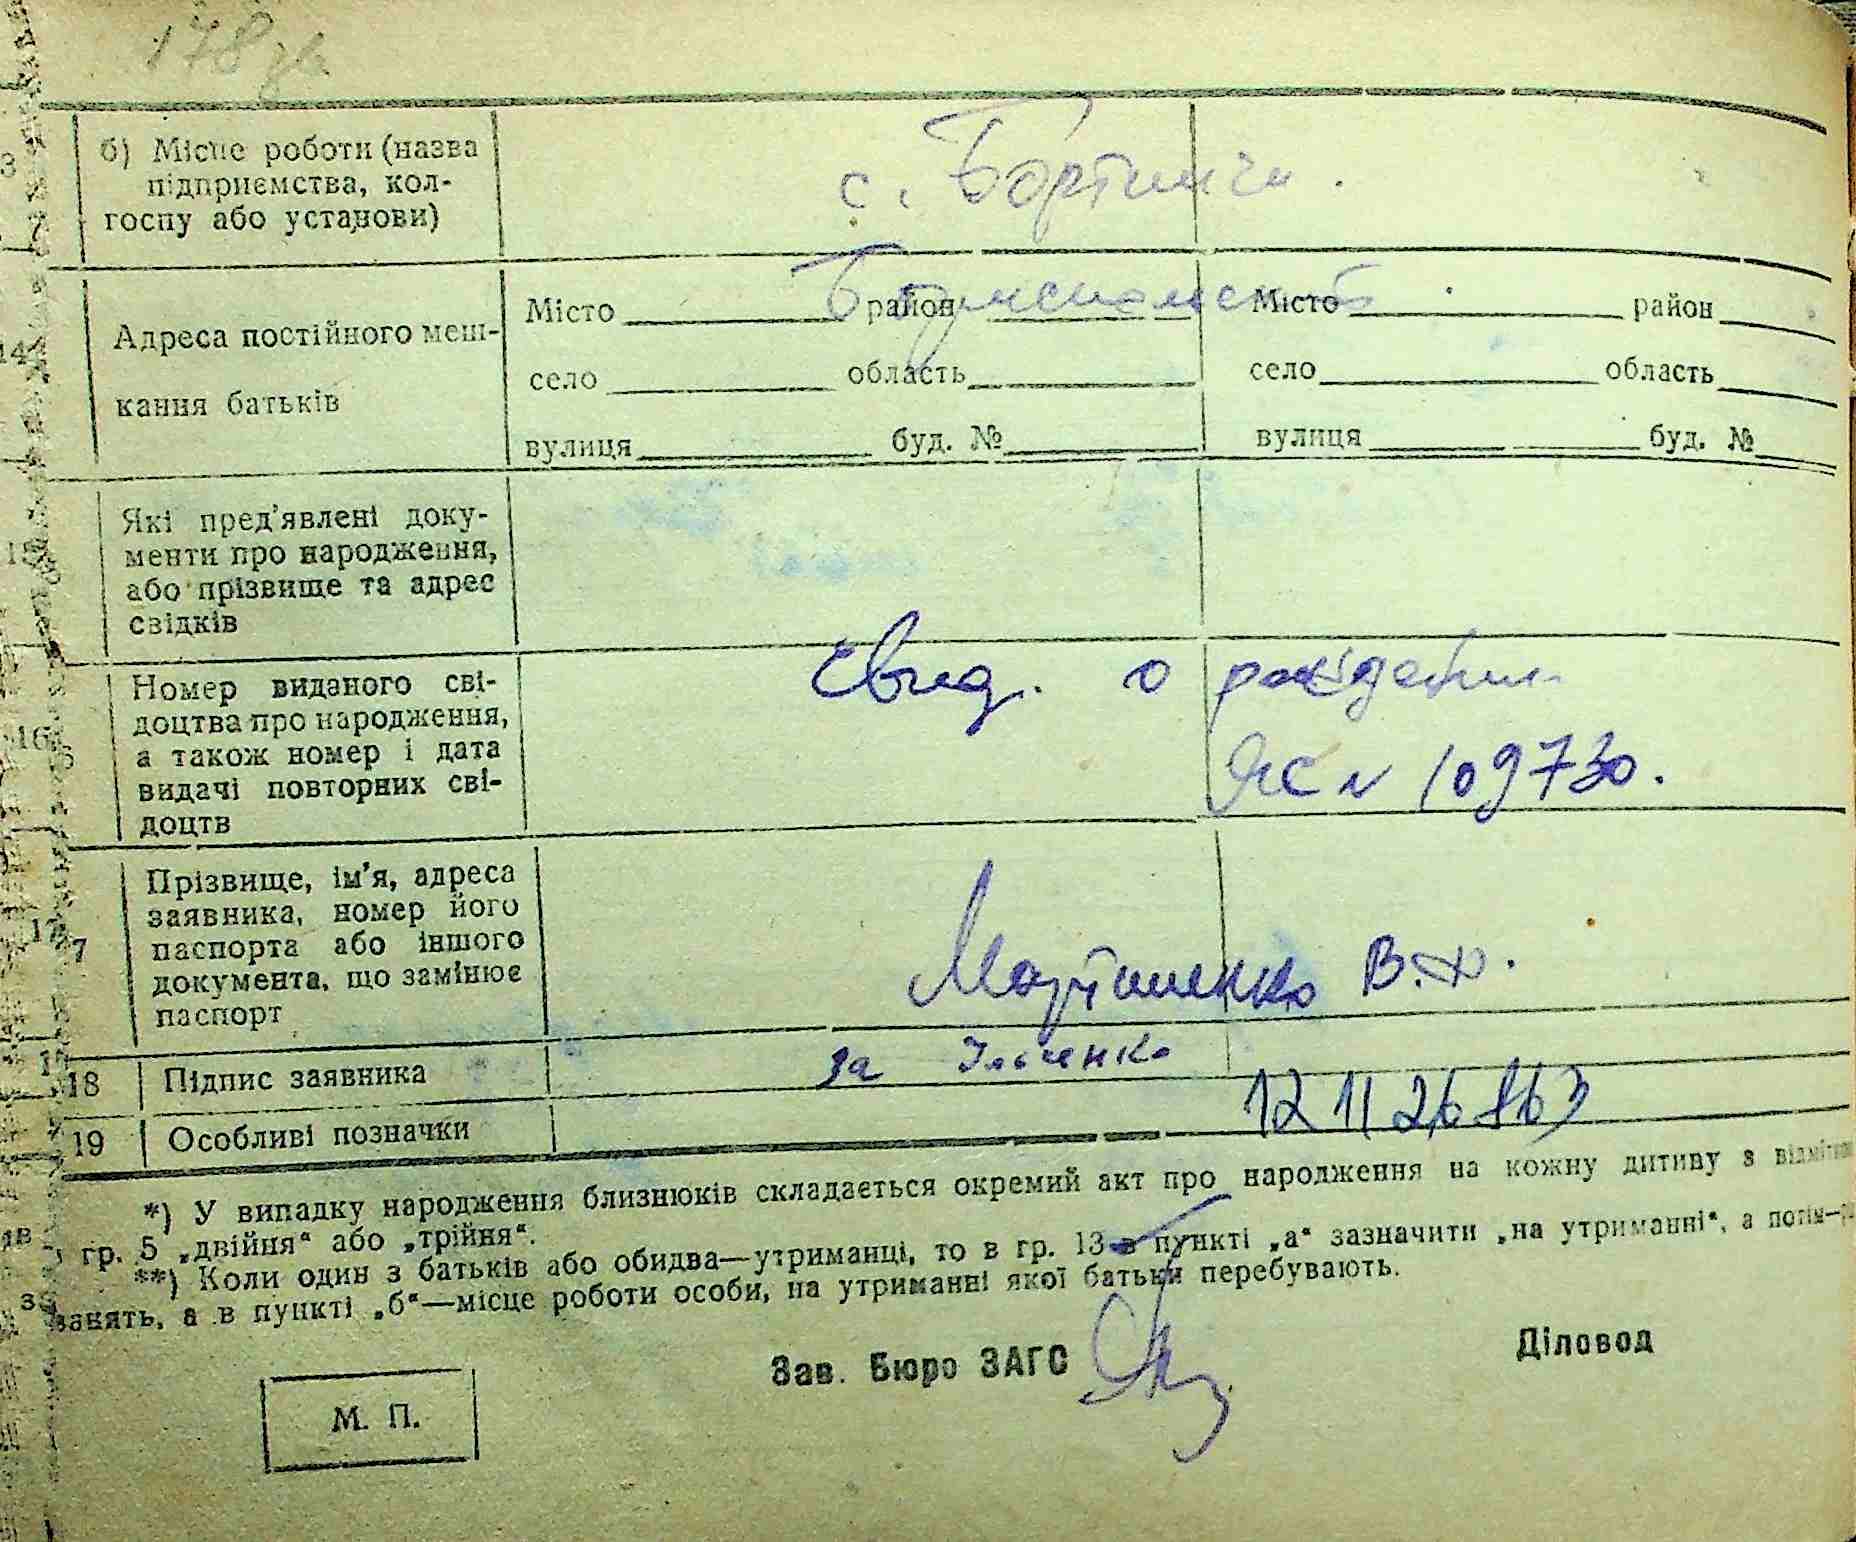 178 зв
б) Місце роботи (назва
підприємства, кол-
госпу або установи)
с. Бортничі.
Адреса постійного меш-
кання батьків
Місто район Місто район
Бориспольский
село область село область
вулиця буд. № вулиця буд. №
Які пред'явлені доку-
менти про народження,
або прізвище та адрес
свідків
16
Номер виданого сві-
доцтва про народження,
а також номер і дата
видачі повторних сві-
доцтв
Свид. о рождении
ЯС № 109730.
Прізвище, ім'я, адреса
заявника, номер його
паспорта або іншого
документа, що замінює
паспорт
Мартиненко В.Ф.
18 Підпис заявника
за Ільченко
19 Особливі позначки
*) У випадку народження близнюків складається окремий акт про народження на кожну дитину з
гр. 5 „двійня“ або „трійня“.
**) Коли один з батьків або обидва—утриманці, то в гр. 13 в пункті „а“ зазначити „на утриманні“, а потім—
занять, а в пункті „б“—місце роботи особи, на утриманні якої батьки перебувають.
Зав. Бюро ЗАГС
Діловод
М. П.